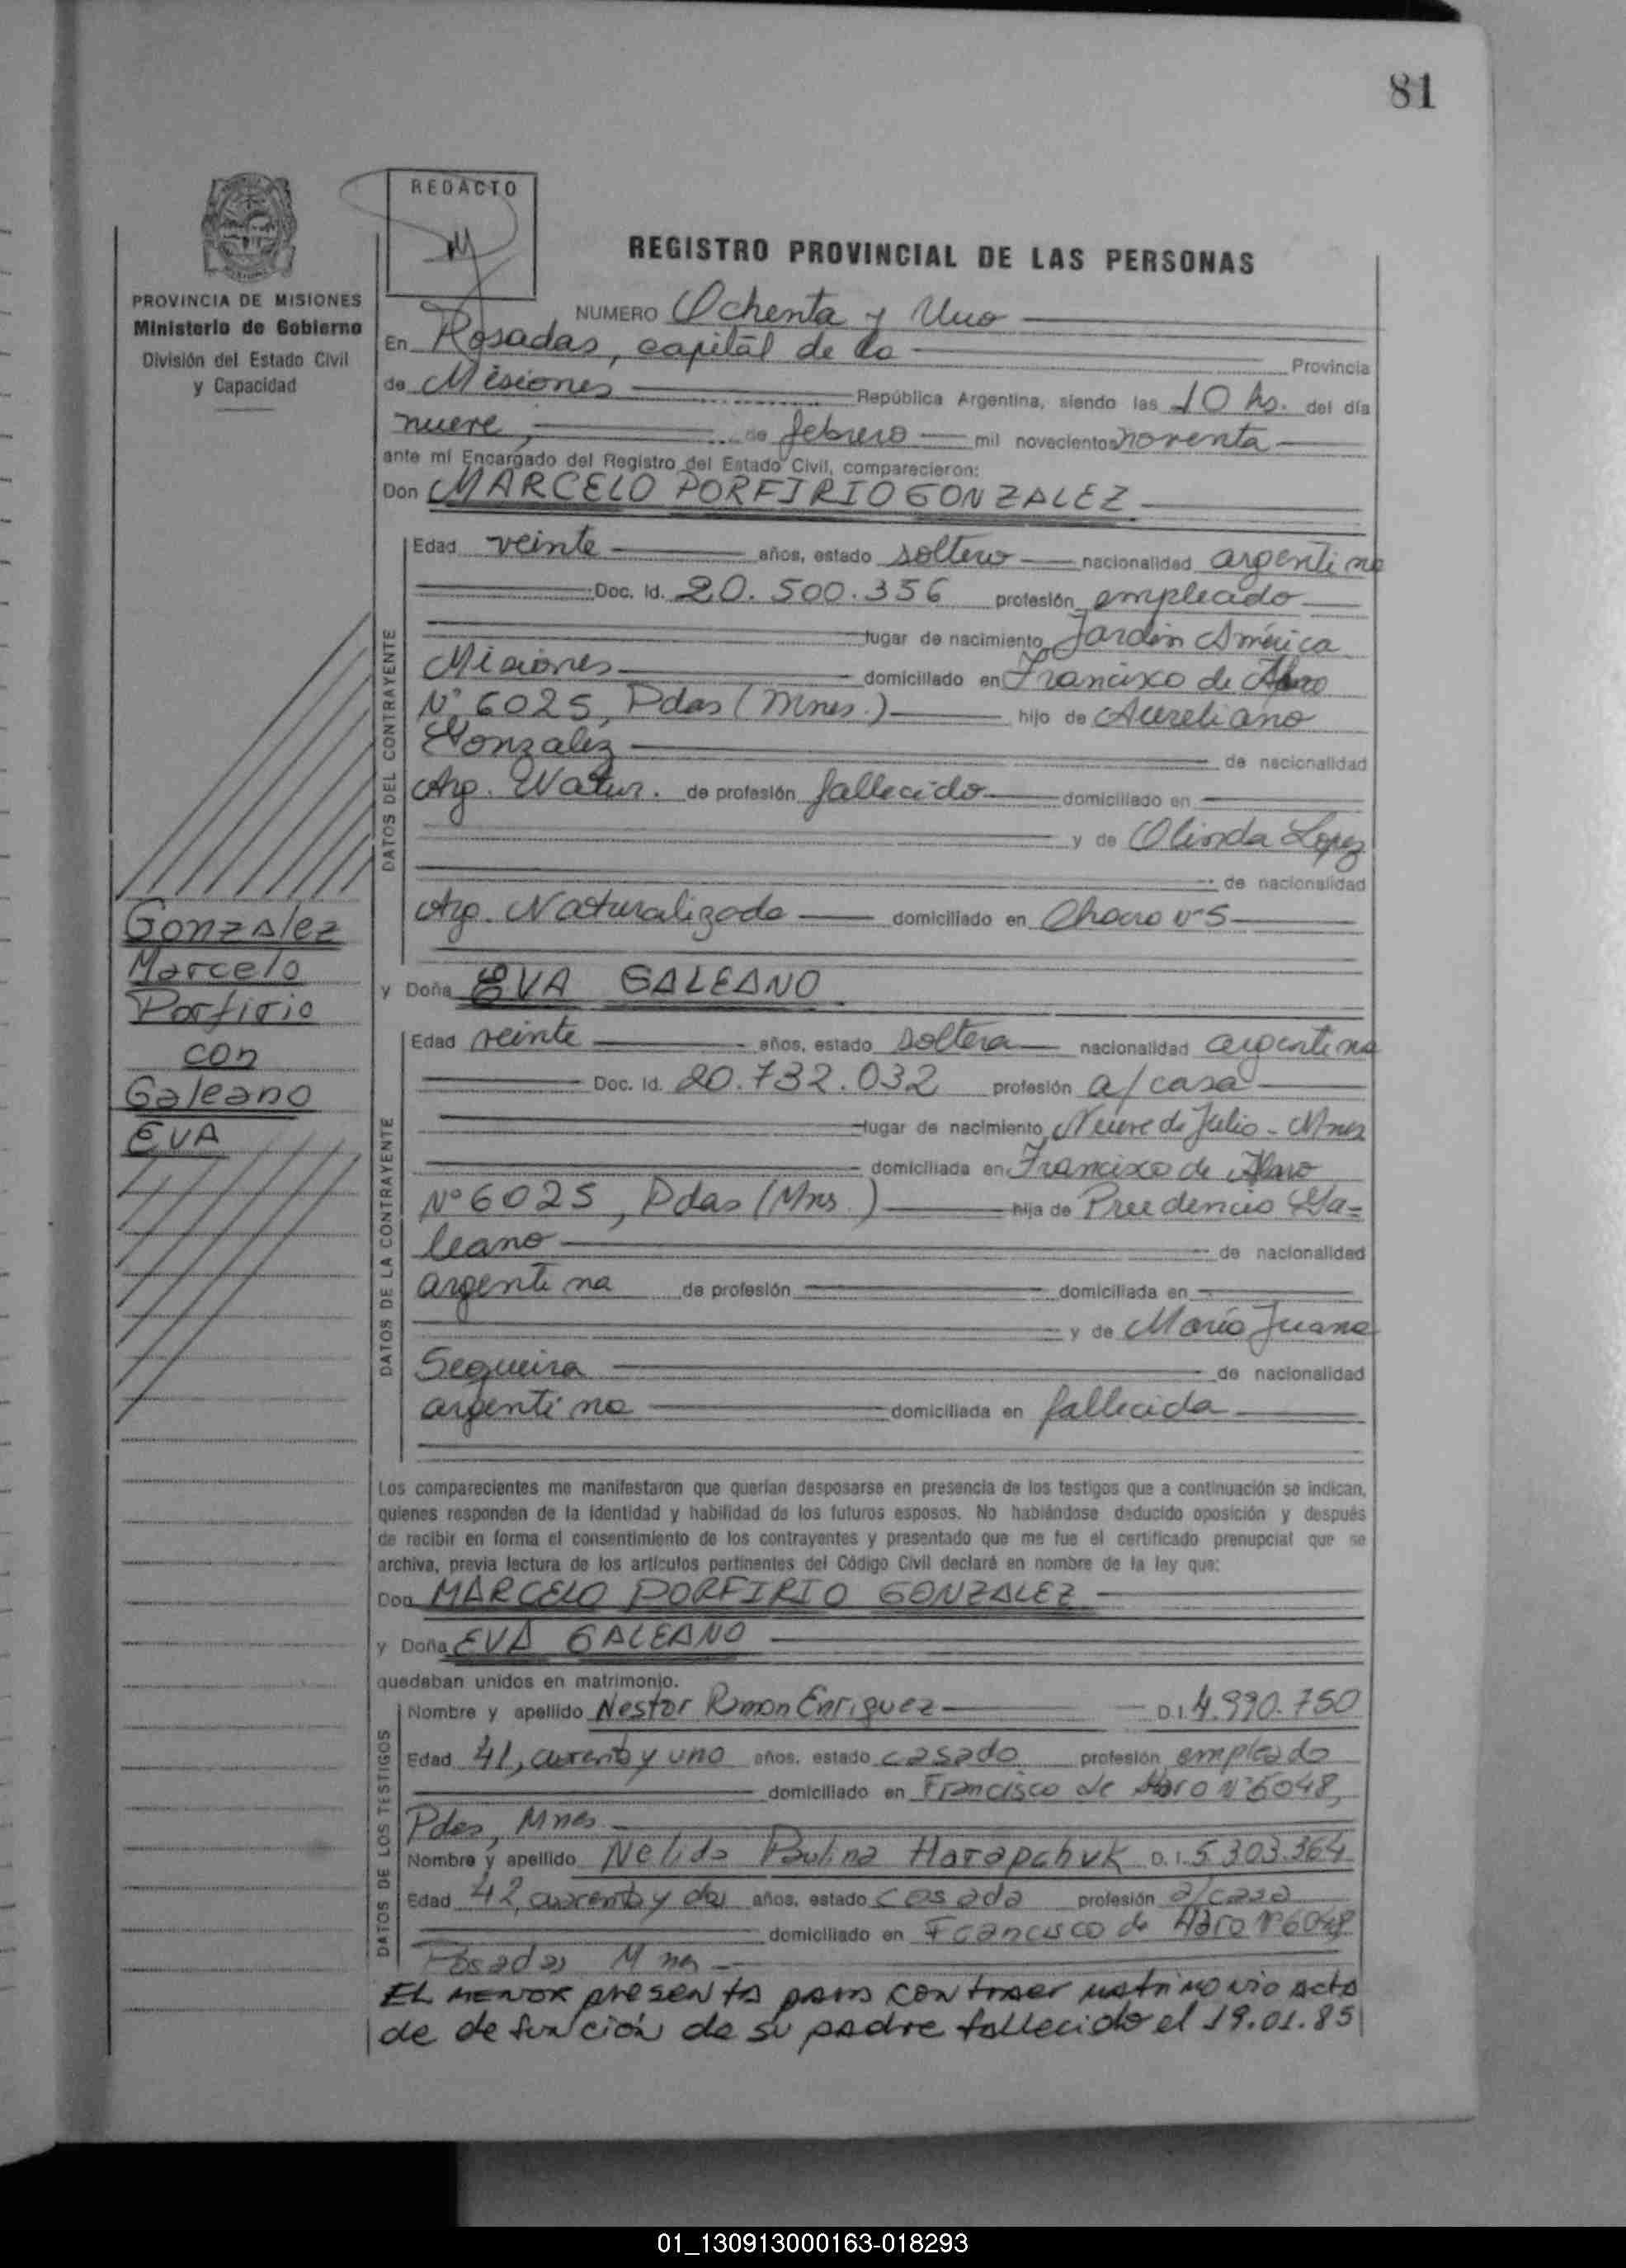 81
REDACTO
PROVINCIA DE MISIONES
Ministerio de Gobierno
División del Estado Civil
y Capacidad
REGISTRO PROVINCIAL DE LAS PERSONAS
NUMERO Ochenta y Uno
En Posadas, capital de la Provincia
de Misiones República Argentina, siendo las 10 hs. del día
nueve, de febrero mil novecientos noventa
ante mí Encargado del Registro del Estado Civil, comparecieron:
Don MARCELO PORFIRIO GONZALEZ
DATOS DEL CONTRAYENTE
Edad veinte años, estado soltero nacionalidad argentina
Doc. Id. 20.500.356 profesión empleado
lugar de nacimiento Jardin América
Misiones domiciliado en Francisco de Haro
N° 6025, Pdas (Mnes.) hijo de Aureliano
Gonzalez de nacionalidad
Arg. Natur. de profesión fallecido domiciliado en
y de Olinda Lopez
de nacionalidad
Arg. Naturalizada domiciliado en Chacra N° 5
y Doña EVA GALEANO
DATOS DE LA CONTRAYENTE
Edad veinte años, estado soltera nacionalidad argentina
Doc. Id. 20.732.032 profesión a/casa
lugar de nacimiento Nueve de Julio - Mnes
domiciliada en Francisco de Haro
N° 6025, Pdas (Mns.) hija de Prudencio Ga=
leano de nacionalidad
argentina de profesión domiciliada en
y de María Juana
Sequeira de nacionalidad
argentina domiciliada en fallecida
Gonzalez
Marcelo
Porfirio
con
Galeano
EVA
Los comparecientes me manifestaron que querían desposarse en presencia de los testigos que a continuación se indican,
quienes responden de la identidad y habilidad de los futuros esposos. No habiéndose deducido oposición y después
de recibir en forma el consentimiento de los contrayentes y presentado que me fue el certificado prenupcial que se
archiva, previa lectura de los artículos pertinentes del Código Civil declaré en nombre de la ley que:
Don MARCELO PORFIRIO GONZALEZ
y Doña EVA GALEANO
quedaban unidos en matrimonio.
DATOS DE LOS TESTIGOS
Nombre y apellido Nestor Ramon Enriquez D.I. 4.990.750
Edad 41, cuarenta y uno años, estado casado profesión empleado
domiciliado en Francisco de Haro N° 6048,
Pdas, Mnes
Nombre y apellido Nelida Paulina Harapchuk D.I. 5.303.364
Edad 42, cuarenta y dos años, estado casada profesión a/casa
domiciliado en Francisco de Haro N° 6048
Posadas Mnes
EL MENOR presenta para contraer matrimonio acta
de defunción de su padre fallecido el 19.01.85
01_130913000163-018293